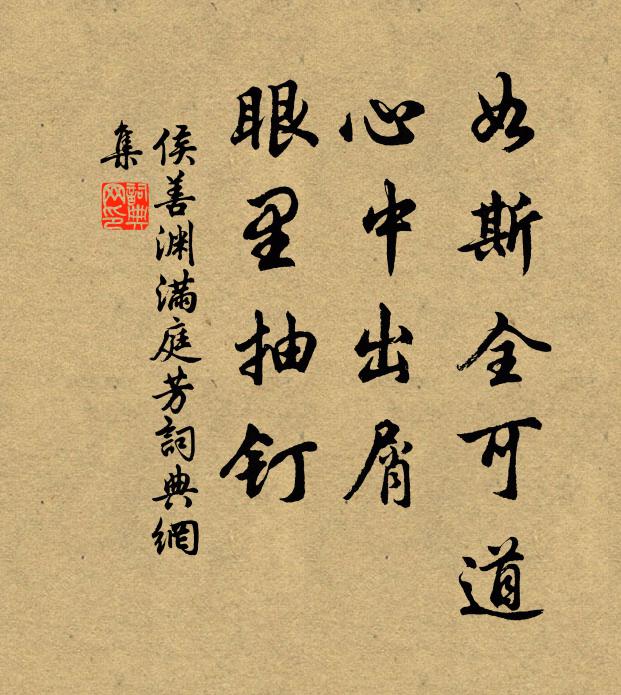 如斯全可道
心中出屑
眼里抽钉
侯善渊满庭芳詞典網
集
詞典
网印